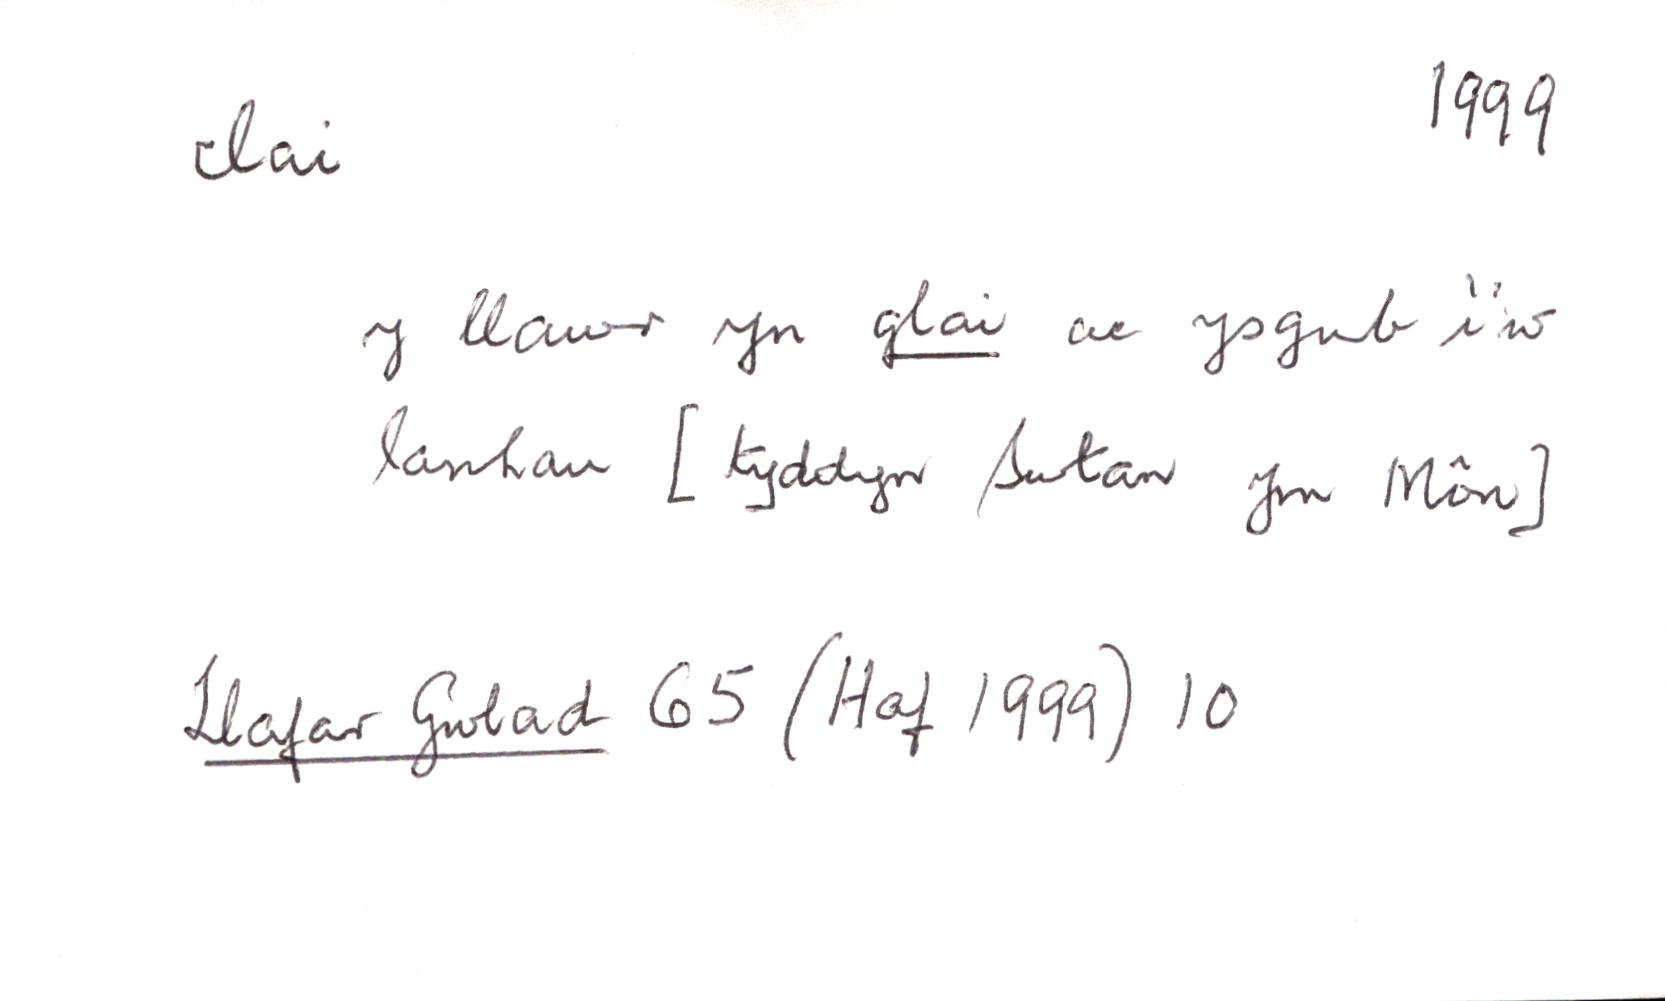 clai 1999
y llawr yn glai ac ysgub i'w
lanhau [tyddyn Swtan ym Môn]
Llafar Gwlad 65 (Haf 1999) 10